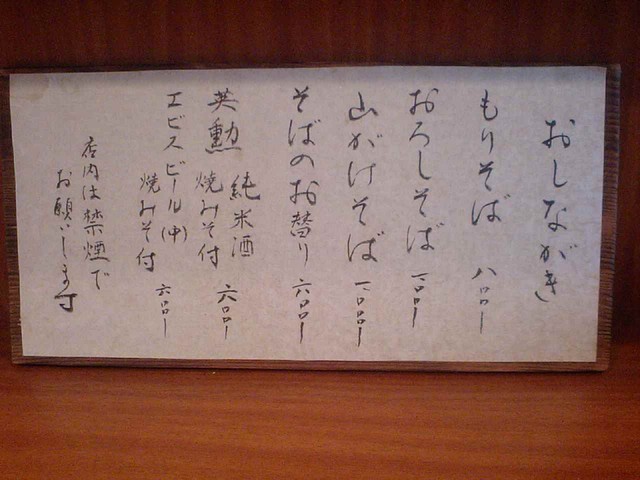 おしながき
もりそば 八〇〇ー
おろしそば 一、〇〇〇ー
山がけそば 一、〇〇〇ー
そばのお替り 六〇〇ー
英勲 純米酒
焼みそ付 六〇〇ー
エビスビール(中)
焼みそ付 六〇〇ー
店内は禁煙で
お願いします